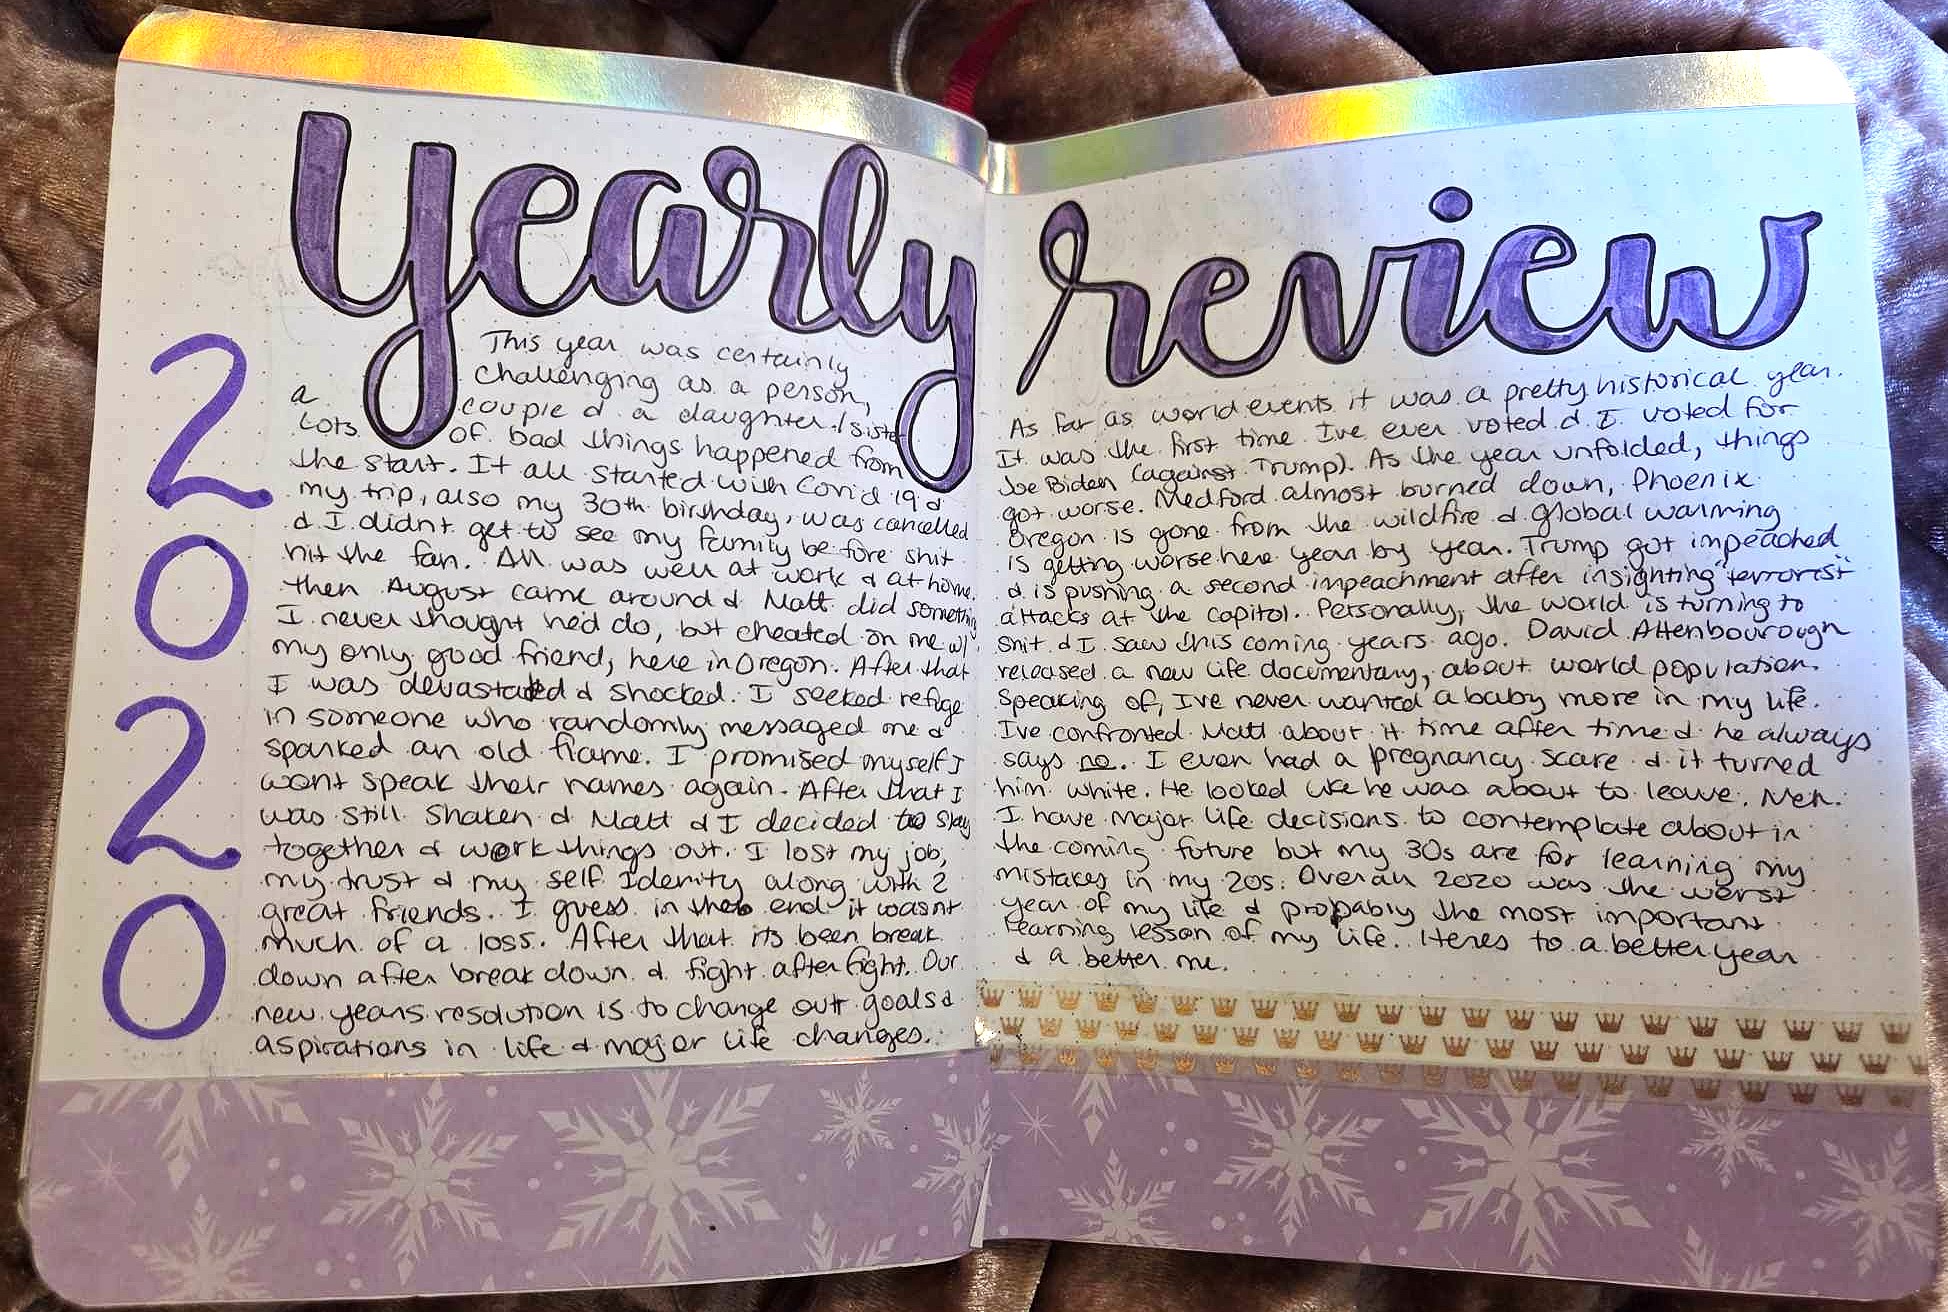 yearly review
2020
This year was certainly
challenging as a person,
a couple & a daughter/sister
Lots of bad things happened from
the start. It all started with Covid 19 &
my trip, also my 30th birthday, was cancelled
& I didnt get to see my family before shit
hit the fan. All was well at work & at home.
then August came around & Matt did something
I never thought he'd do, but cheated on me w/
my only good friend, here in Oregon. After that
I was devastated & shocked. I seeked refuge
in someone who randomly messaged me &
sparked an old flame. I promised myself I
wont speak their names again. After that I
was still shaken & Matt & I decided to stay
together & work things out. I lost my job,
my trust & my self Idenity along with 2
great friends. I guess in the end it wasnt
much of a loss. After that its been break
down after break down & fight after fight. Our
new years resolution is to change our goals &
aspirations in life & major life changes.
As far as world events it was a pretty historical year.
It was the first time Ive ever voted & I voted for
Joe Biden (against Trump). As the year unfolded, things
got worse. Medford almost burned down, Phoenix
Oregon is gone from the wildfire & global warming
is getting worse here year by year. Trump got impeached
& is pushing a second impeachment after insighting "terrorist"
attacks at the capitol. Personally, the world is turning to
shit & I saw this coming years ago. David Attenbourough
released a new life documentary, about world population.
Speaking of, Ive never wanted a baby more in my life.
Ive confronted Matt about it time after time & he always
says no. I even had a pregnancy scare & it turned
him white. He looked like he was about to leave. Meh.
I have major life decisions to contemplate about in
the coming future but my 30s are for learning my
mistakes in my 20s. Overall 2020 was the werst
year of my life & probably the most important
learning lesson of my life. Heres to a better year
& a better me.